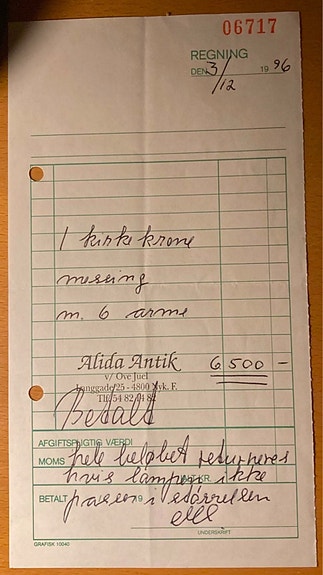 06717
REGNING
DEN 3/12 19 96
1 kirkekrone
messing
m. 6 arme
Alida Antik 6500 -
v/ Ove Juel
Langgade 25 - 4800 Nyk. F.
Tlf. 54 82
Betalt
AFGIFTSPLIGTIG VÆRDI
hele beløbet returneres
MOMS KR.
hvis lampen ikke
BETALT 19
passer i størrelsen
UNDERSKRIFT
GRAFISK 10040